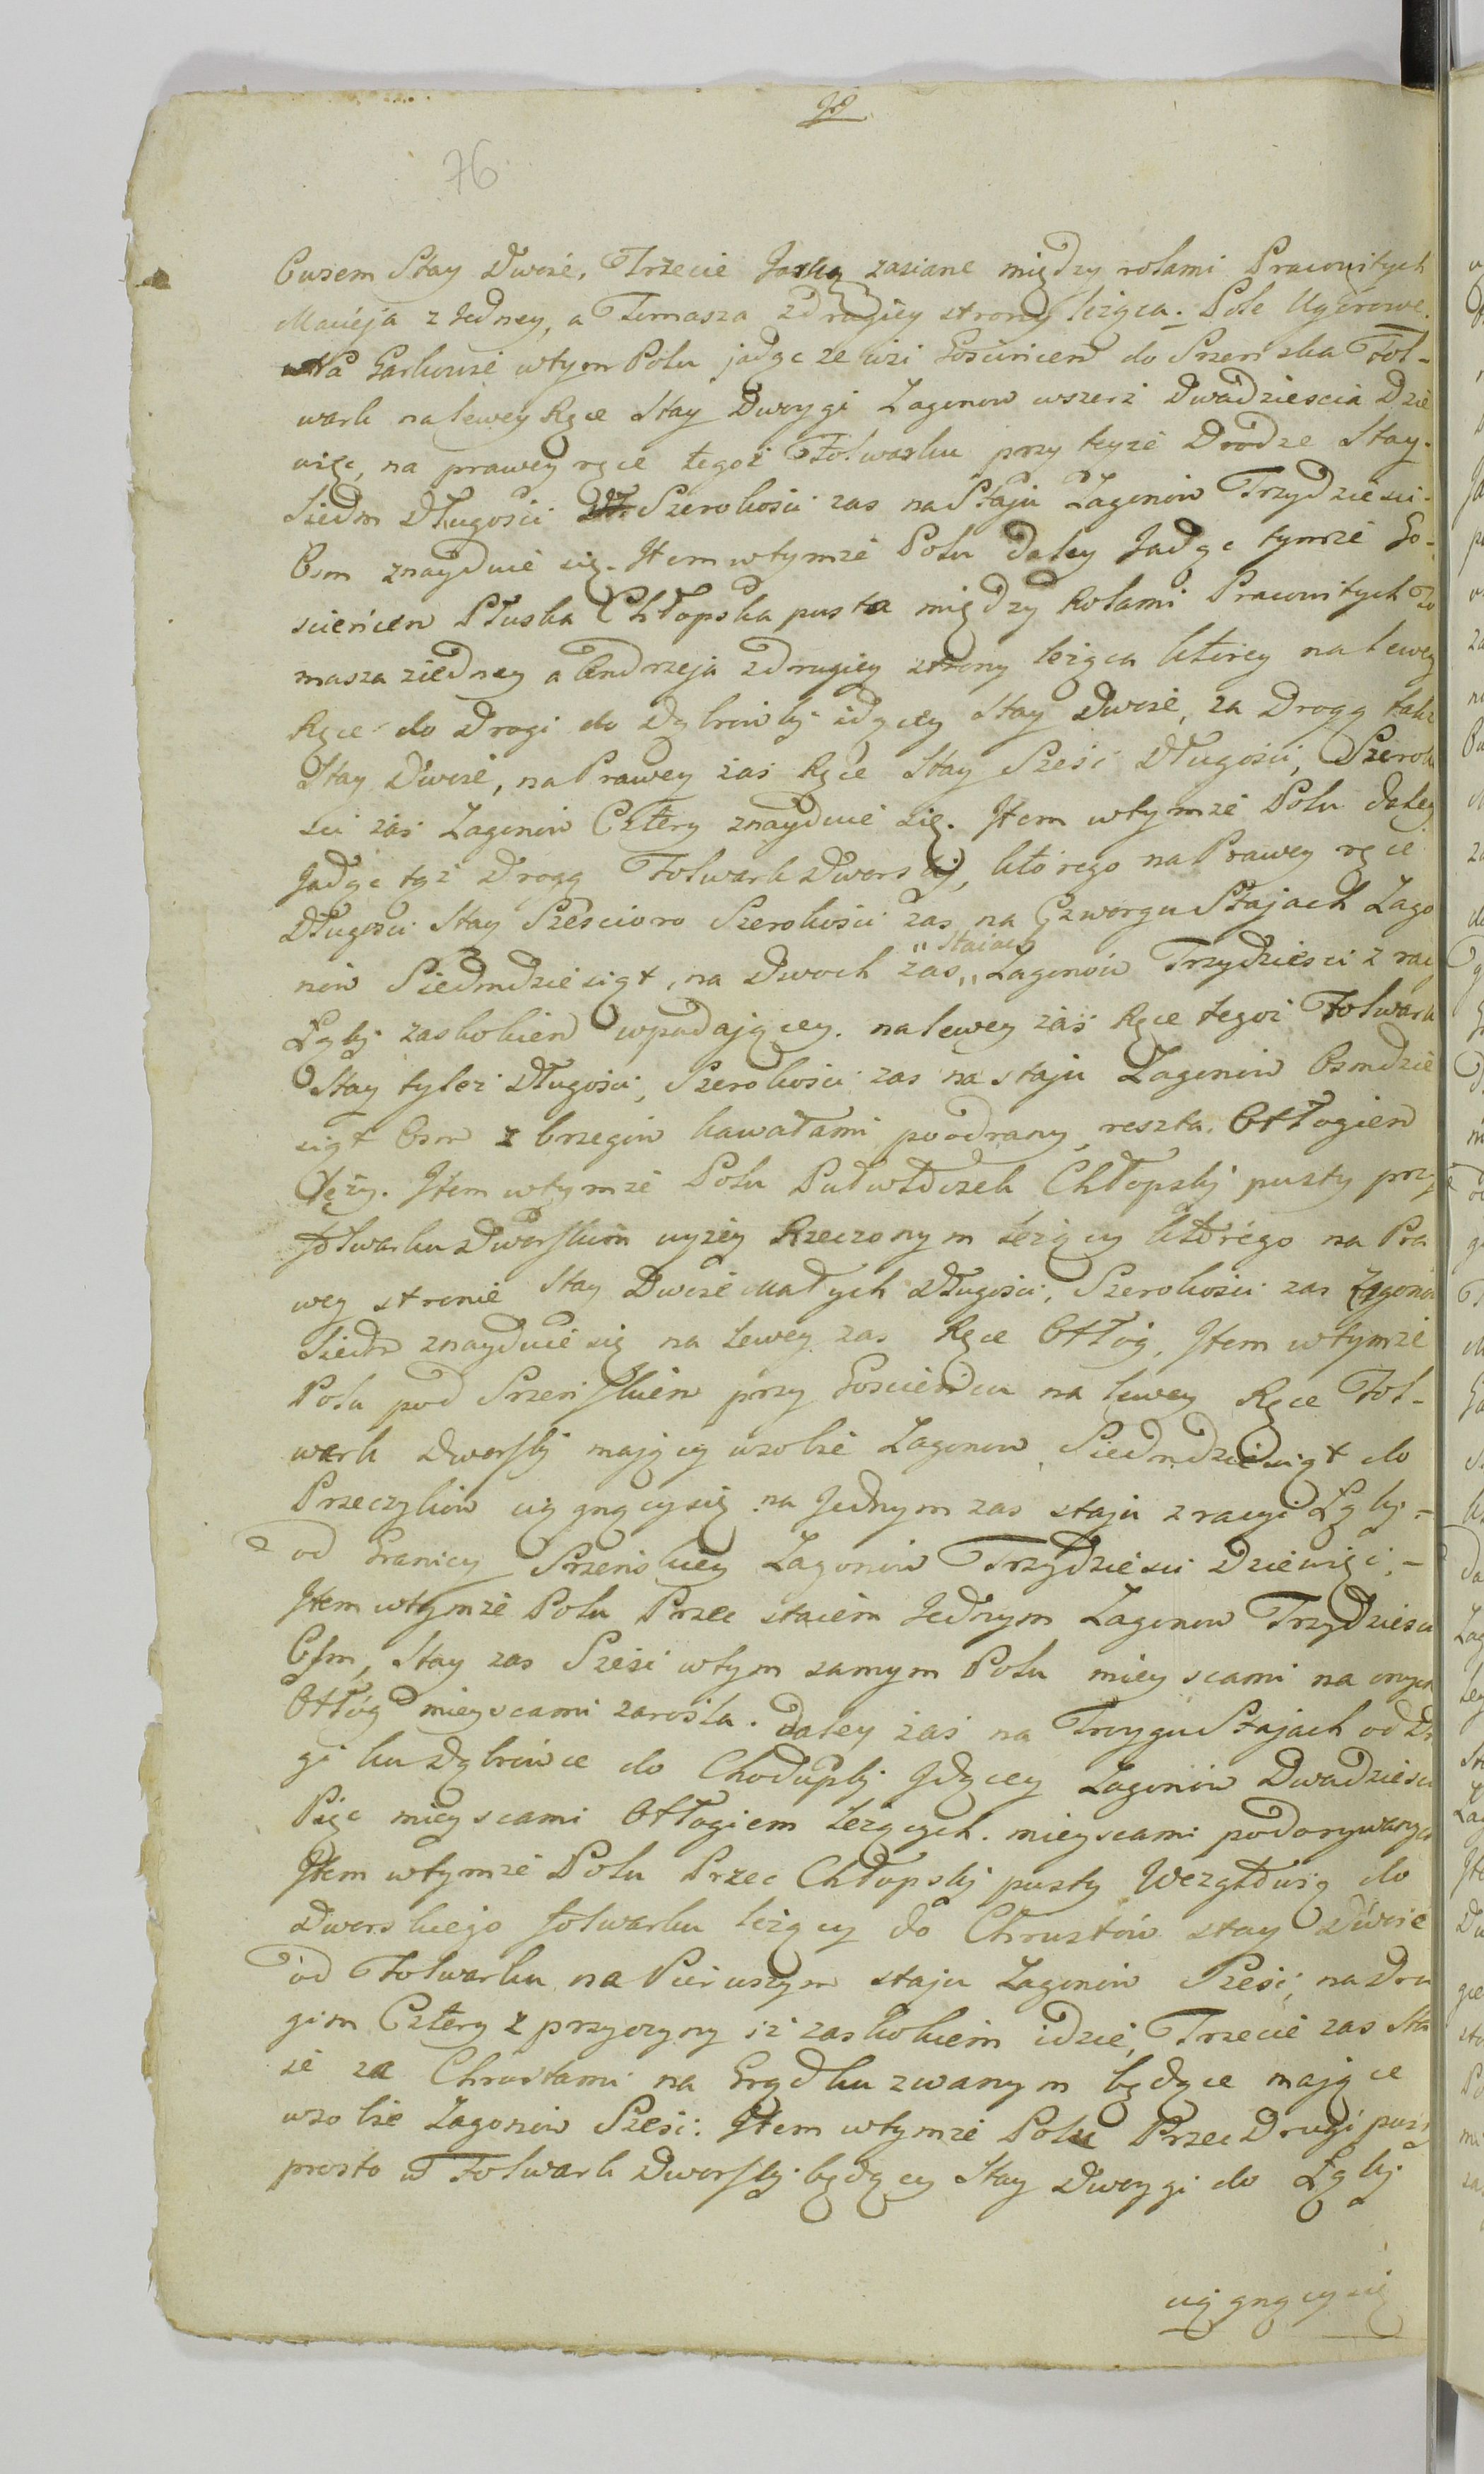 76
Owsem Stay Dwoie, Trzecie Jarką zasiane między rolami Pracowitych
Macieja z Jedney, a Tomasza zdrugiey strony leżąca. Pole Ugorowe.
Na Garkowie wtym Polu jadąc ze wsi Goscincem do Srzenska Fol-
wark na lewey Ręce Stay Dwoygi Zagonow wszerz Dwadziescia Dzie
więc, na prawey ręce tegoż Folwarku przy teyże Drodze Stay.
Siedm Długości Szerokości zas na Staju Zagonów Trzydziesci-
Osm znayduie się. Item wtymże Polu daley Jadąc tymże Go-
scieńcem Płuska Chłopska pusta między Rolami Pracowitych To
masza ziedney a Andrzeja zdrugiey strony leżąca którey na lewey
Ręce do Drogi do Dąbrówki idącey Stay Dwoie, za Drogą także
Stay Dwoie, na Prawey zaś Ręce Stay Sześć Długości, Szeroko
sci zaś Zagonów Cztery znayduie się. Item wtymże Polu daley
Jadąc tąż Drogą Folwark Dworski, którego na Prawey ręce
Długości Stay Sześcioro Szerokości zas na Czworgu Stajach Zago
nów Siedmdziesiąt, na Dwoch zas „Staiach„ Zagonów Trzydziesci z racyi
Łąki zaskokiem wpadającey. na lewey zaś Ręce tegoż Folwark
Stay tyleż Długości, Szerokości zas na staju Zagonów Osmdzie
siąt Osm z brzegów kawałami poodrany, reszta Odłogiem
leży. Item wtymże Polu Pułwłoczek Chłopski pusty przy
Folwarku Dworskim wyżey Rzeczonym leżący którego na Pra
wey stronie Stay Dwoie Małych Długości, Szerokości zas Zagonów
Siedm znayduie się na Lewey zas Ręce Odłóg, Item wtymże
Polu pod Srzenskiem przy Goscieńcu na lewey Ręce Fol-
wark Dworski mający wsobie Zagonow Siedmdziesiąt do
Przeczyków ciągnący się na Jednym zas staju z racyi Łąki -
od Granicy Srzenskiey Zagonów Trzydziesci Dziewięć. -
Item wtymże Polu Przec staiem Jednym Zagonow Trzydziesci
Osm, Stay zas Sześć wtym samym Polu mieyscami na onych
Odłóg mieyscami zarośla. daley zaś na Troygu Stajach od Dro
gi ku Dąbrówce do Chodupki Idącey Zagonów Dwadziescia
Pięc mieyscami Odłogiem leżących. mieyscami podorywanych
Item wtymże Polu Przec Chłopski pusty Wezgłowią do
Dworskiego folwarku leżący do Chrustów stay Dwoie
od Folwarku na Pierwszym staju Zagonów Sześć, na Dru
gim Cztery z przyczyny iż zaskokiem idzie, Trzecie zas Sta
ie za Chrustami na Grądku zwanym będące mające
wsobie Zagonów Sześć. Item wtymże Polu Przec Drugi pusty
prosto w Folwark Dworski będący Stay Dwoygi do Łąki
ciągnący się